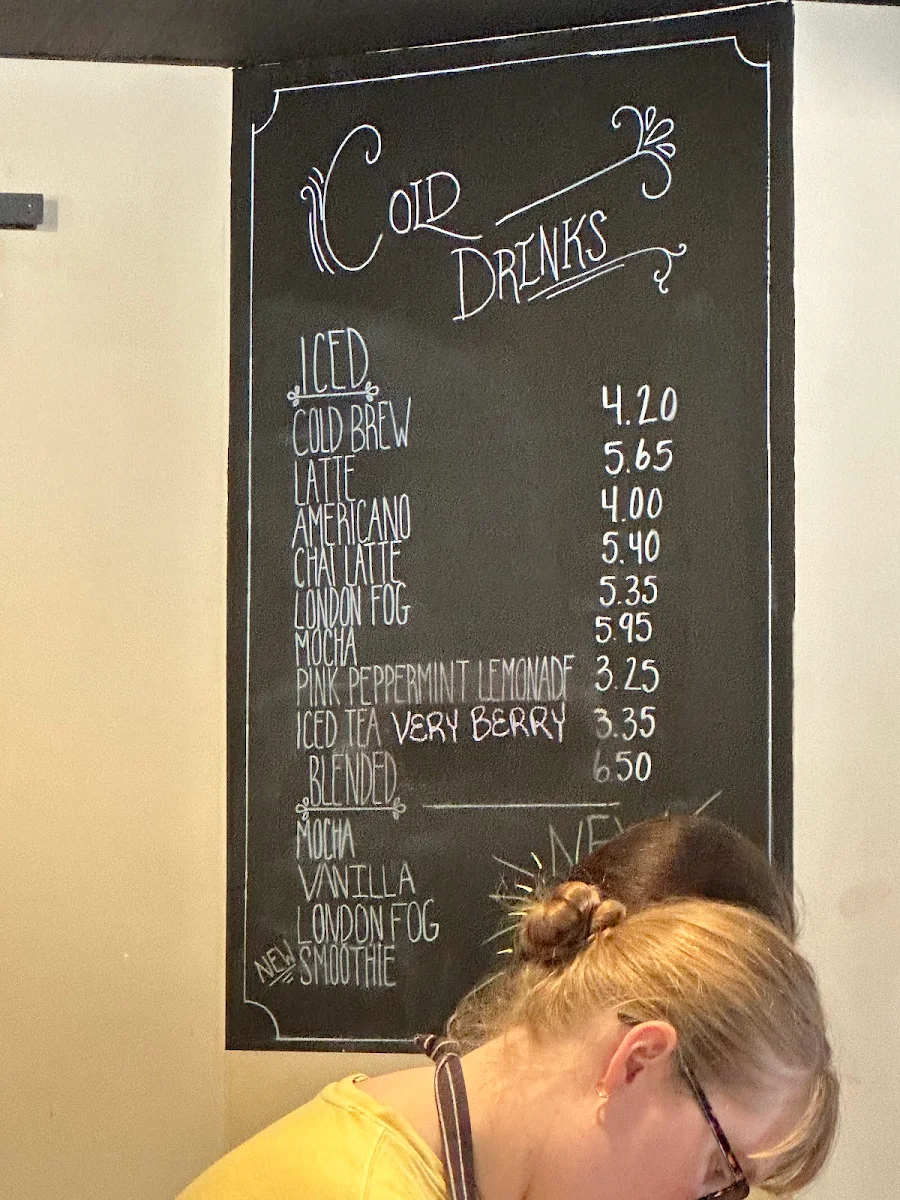 COLD
DRINKS
ICED
COLD BREW 4.20
LATTE 5.65
AMERICANO 4.00
CHAI LATTE 5.40
LONDON FOG 5.35
MOCHA 5.95
PINK PEPPERMINT LEMONADE 3.25
ICED TEA VERY BERRY 3.35
BLENDED 6.50
MOCHA
VANILLA
LONDON FOG
NEW SMOOTHIE